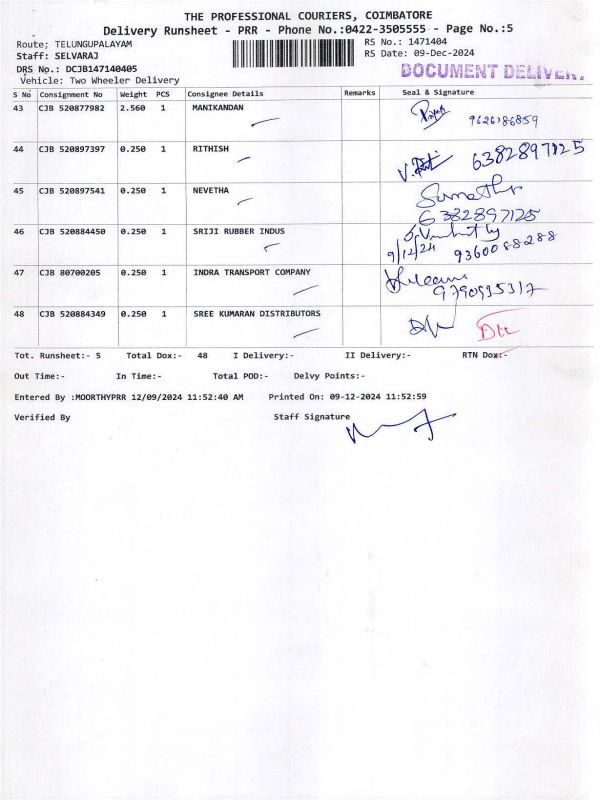 THE PROFESSIONAL COURIERS, COIMBATORE
Delivery Runsheet - PRR - Phone No.:0422-3505555 - Page No.:5
Route; TELUNGUPALAYAM RS No.: 1471404
Staff: SELVARAJ RS Date: 09-Dec-2024
DRS No.: DCJB147140405 DOCUMENT
Vehicle: Two Wheeler Delivery
S No Consignment No Weight PCS Consignee Details Remarks Seal & Signature
43 CJB 520877982 2.560 1 MANIKANDAN
9626186859
44 CJB 520897397 0.250 1 RITHISH 6382897125
45 CJB 520897541 0.250 1 NEVETHA
6382897125
46 CJB 520884450 0.250 1 SRIJI RUBBER INDUS
9/12/24 9360088288
47 CJB 80700205 0.250 1 INDRA TRANSPORT COMPANY
48 CJB 520884349 0.250 1 SREE KUMARAN DISTRIBUTORS
Tot. Runsheet:- 5 Total Dox:- 48 I Delivery:- II Delivery:- RTN Dox:-
Out Time:- In Time:- Total POD:- Delvy Points:-
Entered By :MOORTHYPRR 12/09/2024 11:52:40 AM Printed On: 09-12-2024 11:52:59
Verified By Staff Signature